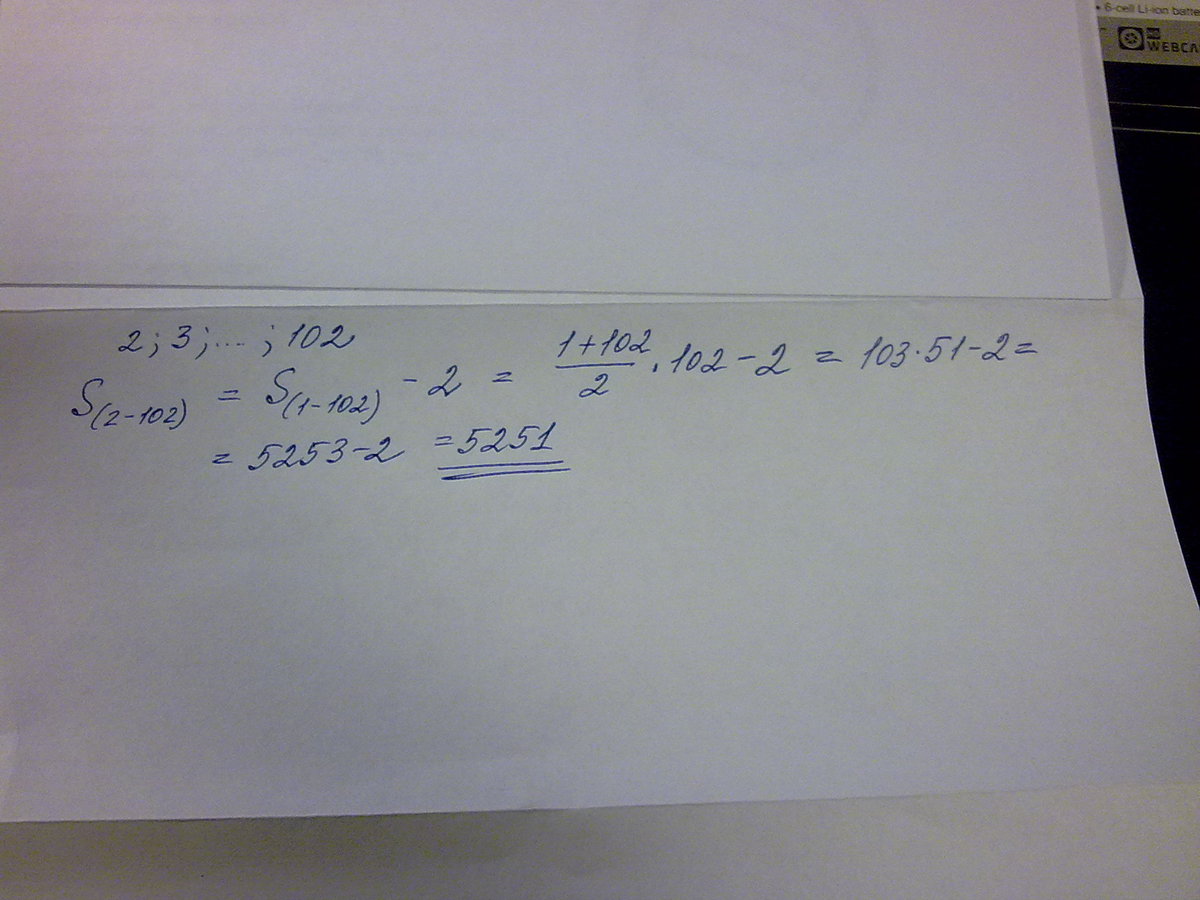 • 6-cell Li-ion batte
WEBCA
2; 3; ... ; 102
S(2-102) = S(1-102) - 2 = (1+102)/2 · 102 - 2 = 103·51-2=
= 5253-2 = 5251